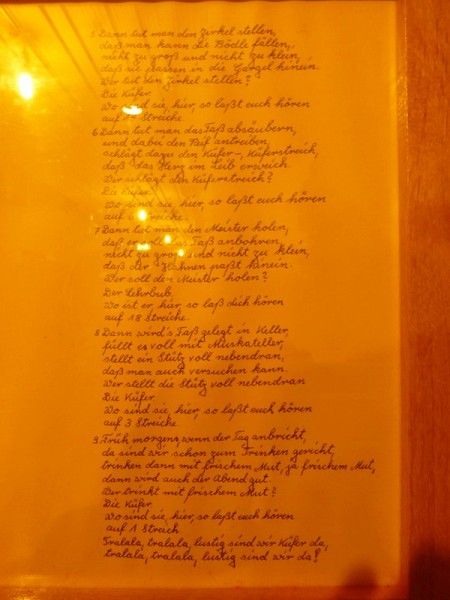 5 Dann tut man den Zirkel stellen,
daß man kann die Bödle fällen,
nicht zu groß und nicht zu klein,
daß sie passen in die Gargel hinein.
Wer tut den Zirkel stellen?
Die Küfer.
Wo sind sie, hier, so laßt euch hören
auf Streiche.
6 Dann tut man das Faß absäubern,
und dabei den Reif antreiben,
schlägt dazu den Küfer-, Küferstreich,
daß das Herz im Leib erweich.
Wer schlägt den Küferstreich?
Die Küfer.
Wo sind sie, hier, so laßt euch hören
auf 6 Streiche.
7 Dann tut man den Meister holen,
daß er soll das Faß anbohren,
nicht zu groß und nicht zu klein,
daß der Hahnen paßt hinein.
Wer soll den Meister holen?
Der Lehrbub.
Wo ist er, hier, so laß dich hören
auf 18 Streiche.
8 Dann wird's Faß gelegt in Keller,
füllt es voll mit Muskateller,
stellt ein Stütz voll nebendran,
daß man auch versuchen kann.
Wer stellt die Stütz voll nebendran
Die Küfer.
Wo sind sie, hier, so laßt euch hören
auf 3 Streiche.
9 Früh morgens, wenn der Tag anbricht,
da sind wir schon zum Trinken gericht,
trinken dann mit frischem Mut, ja frischem Mut,
dann wird auch der Abend gut
Wer trinkt mit frischem Mut?
Die Küfer.
Wo sind sie, hier, so laßt euch hören
auf 1 Streich.
Tralala, tralala, lustig sind wir Küfer da,
tralala, tralala, lustig sind wir da!